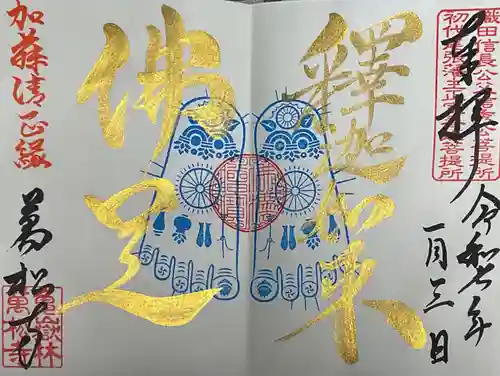 奉拝
織田信長公
初代
菩提所
令和七年
一月三日
釋迦如来
佛足
加藤清正縁
萬松寺
亀嶽林
萬松寺